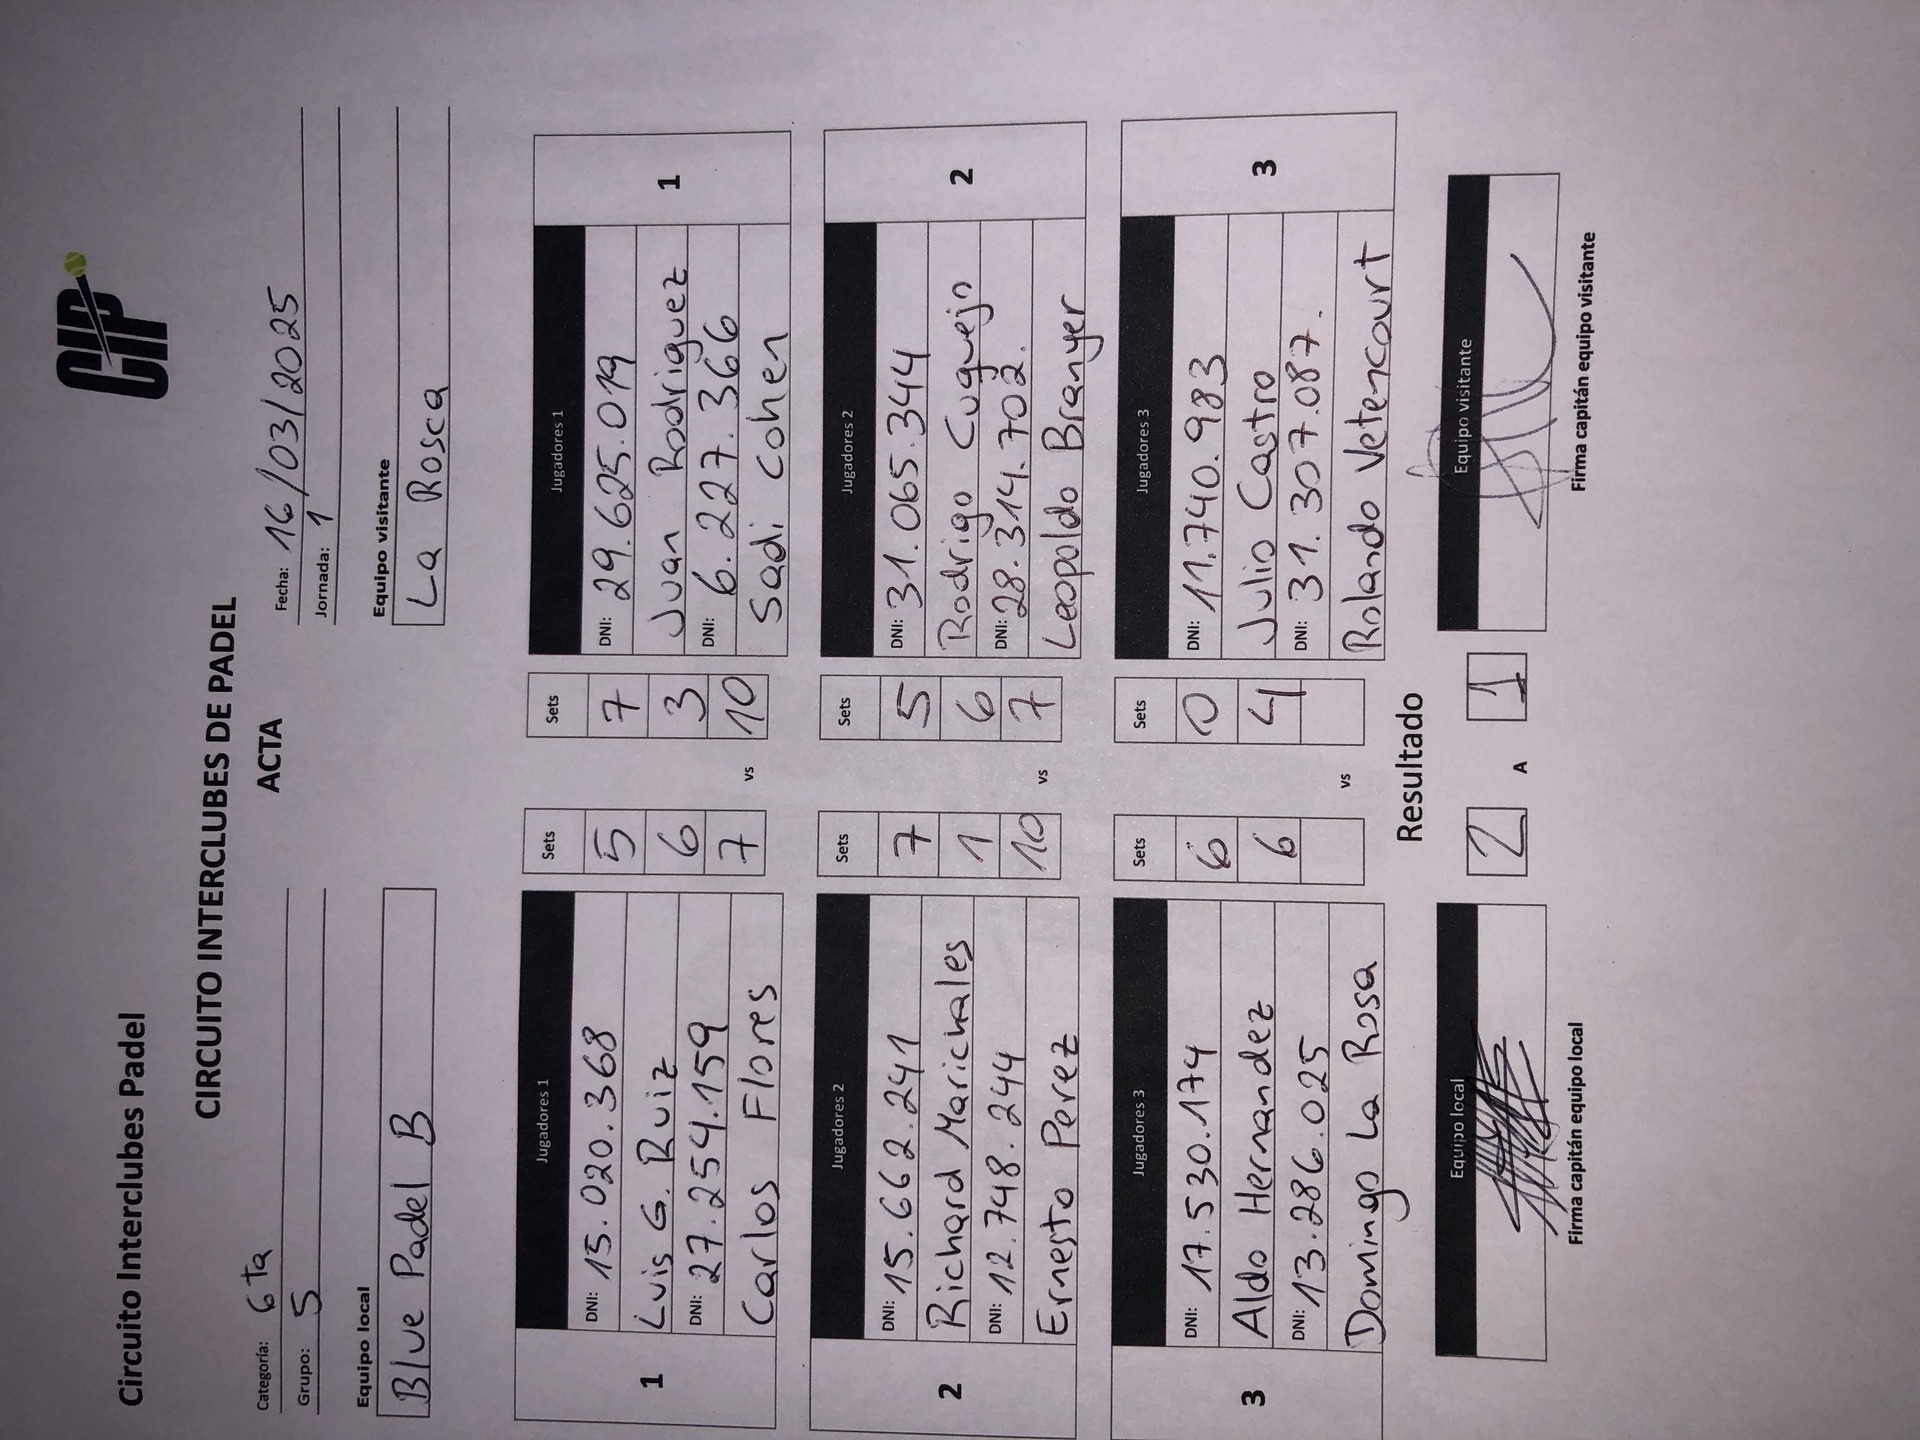 Circuito Interclubes Padel
CIP
CIRCUITO INTERCLUBES DE PADEL
ACTA
Categoría: 6ta
Fecha: 16/03/2025
Grupo: 5
Jornada: 1
Equipo local
Equipo visitante
Blue Padel B
La Rosca
Jugadores 1 Sets Sets Jugadores 1
DNI: 15.020.368 5 7 DNI: 29.625.019
1 Luis G. Ruiz 6 3 Juan Rodriguez 1
DNI: 27.254.159 7 vs 10 DNI: 6.227.366
Carlos Flores Sadi Cohen
Jugadores 2 Sets Sets Jugadores 2
DNI: 15.662.241 7 5 DNI: 31.065.344
2 Richard Marichales 1 6 Rodrigo Cuquejo 2
DNI: 12.748.244 10 vs 7 DNI: 28.314.702.
Ernesto Perez Leopoldo Branyer
Jugadores 3 Sets Sets Jugadores 3
DNI: 17.530.174 6 0 DNI: 11.740.983
3 Aldo Hernandez 6 4 Julio Castro 3
DNI: 13.286.025 vs DNI: 31.307.087.
Domingo La Rosa Rolando Vetencourt
Resultado
Equipo local 2 A 1 Equipo visitante
Firma capitán equipo local
Firma capitán equipo visitante